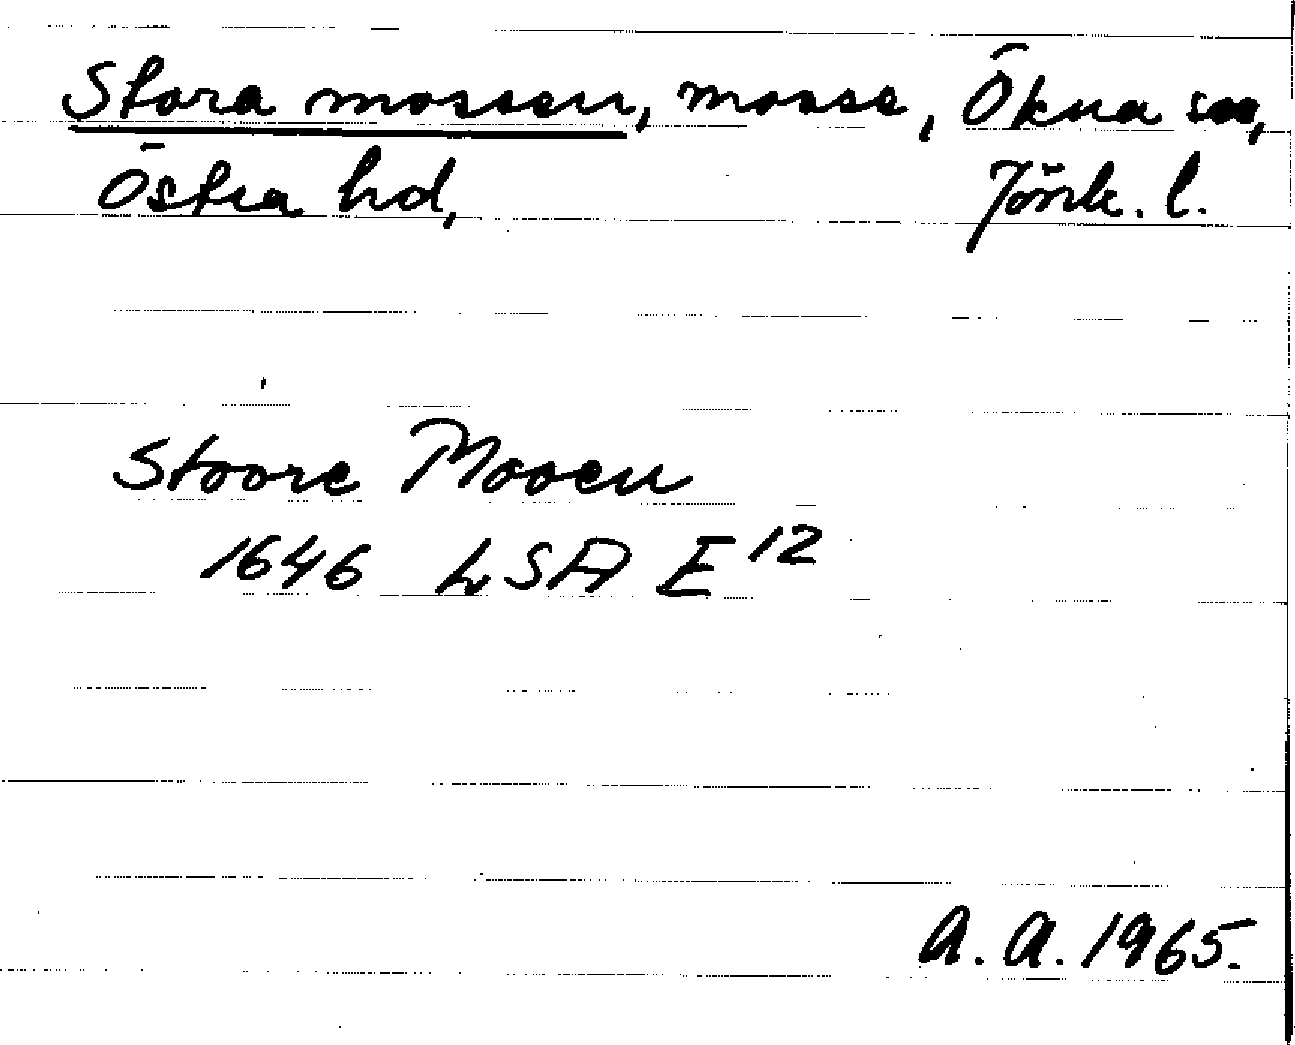 Stora mossen, mosse, Ökna sn,
Östra hd, Jönk. l.
Stoore Mosen
1646 LSA E 12
A. A. 1965.